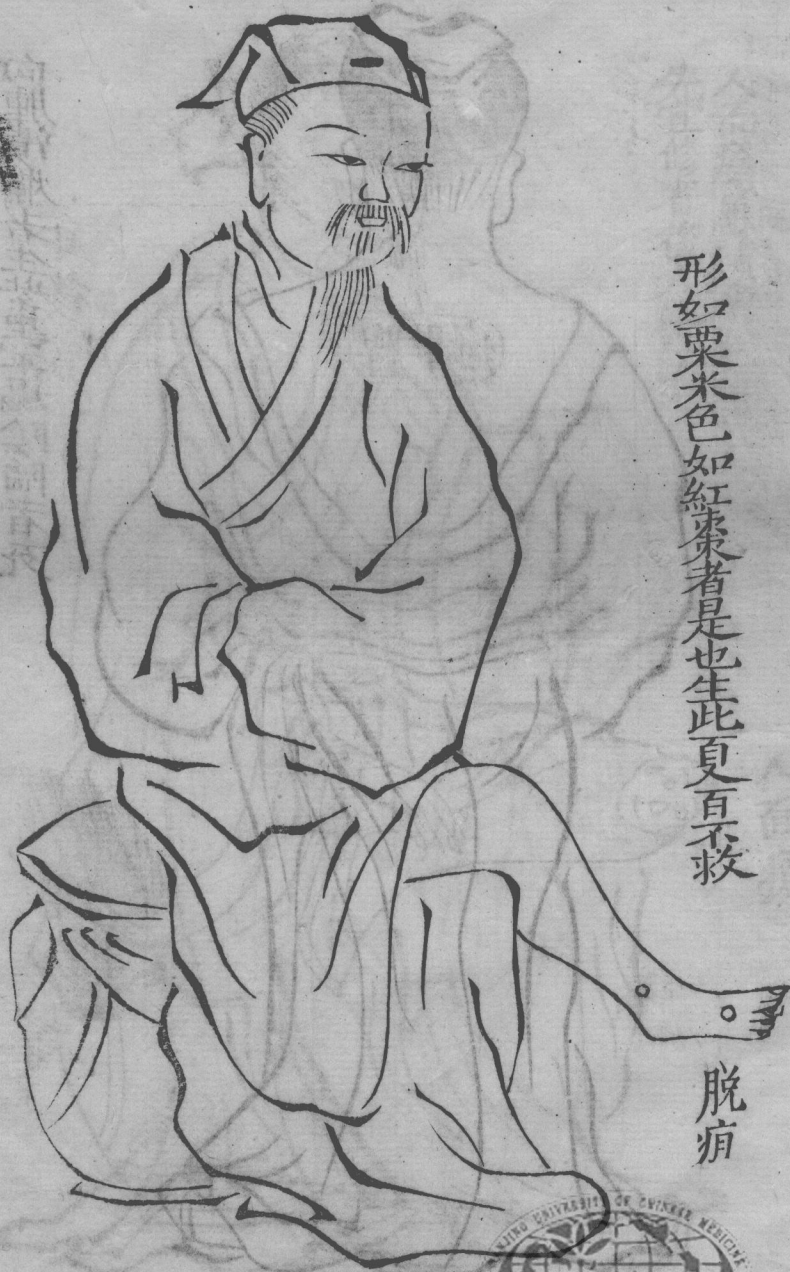 形如粟米色如紅棗者是也生此更百不救
脫疽
NJING UNIVERSITY OF CHINESE MEDICINE